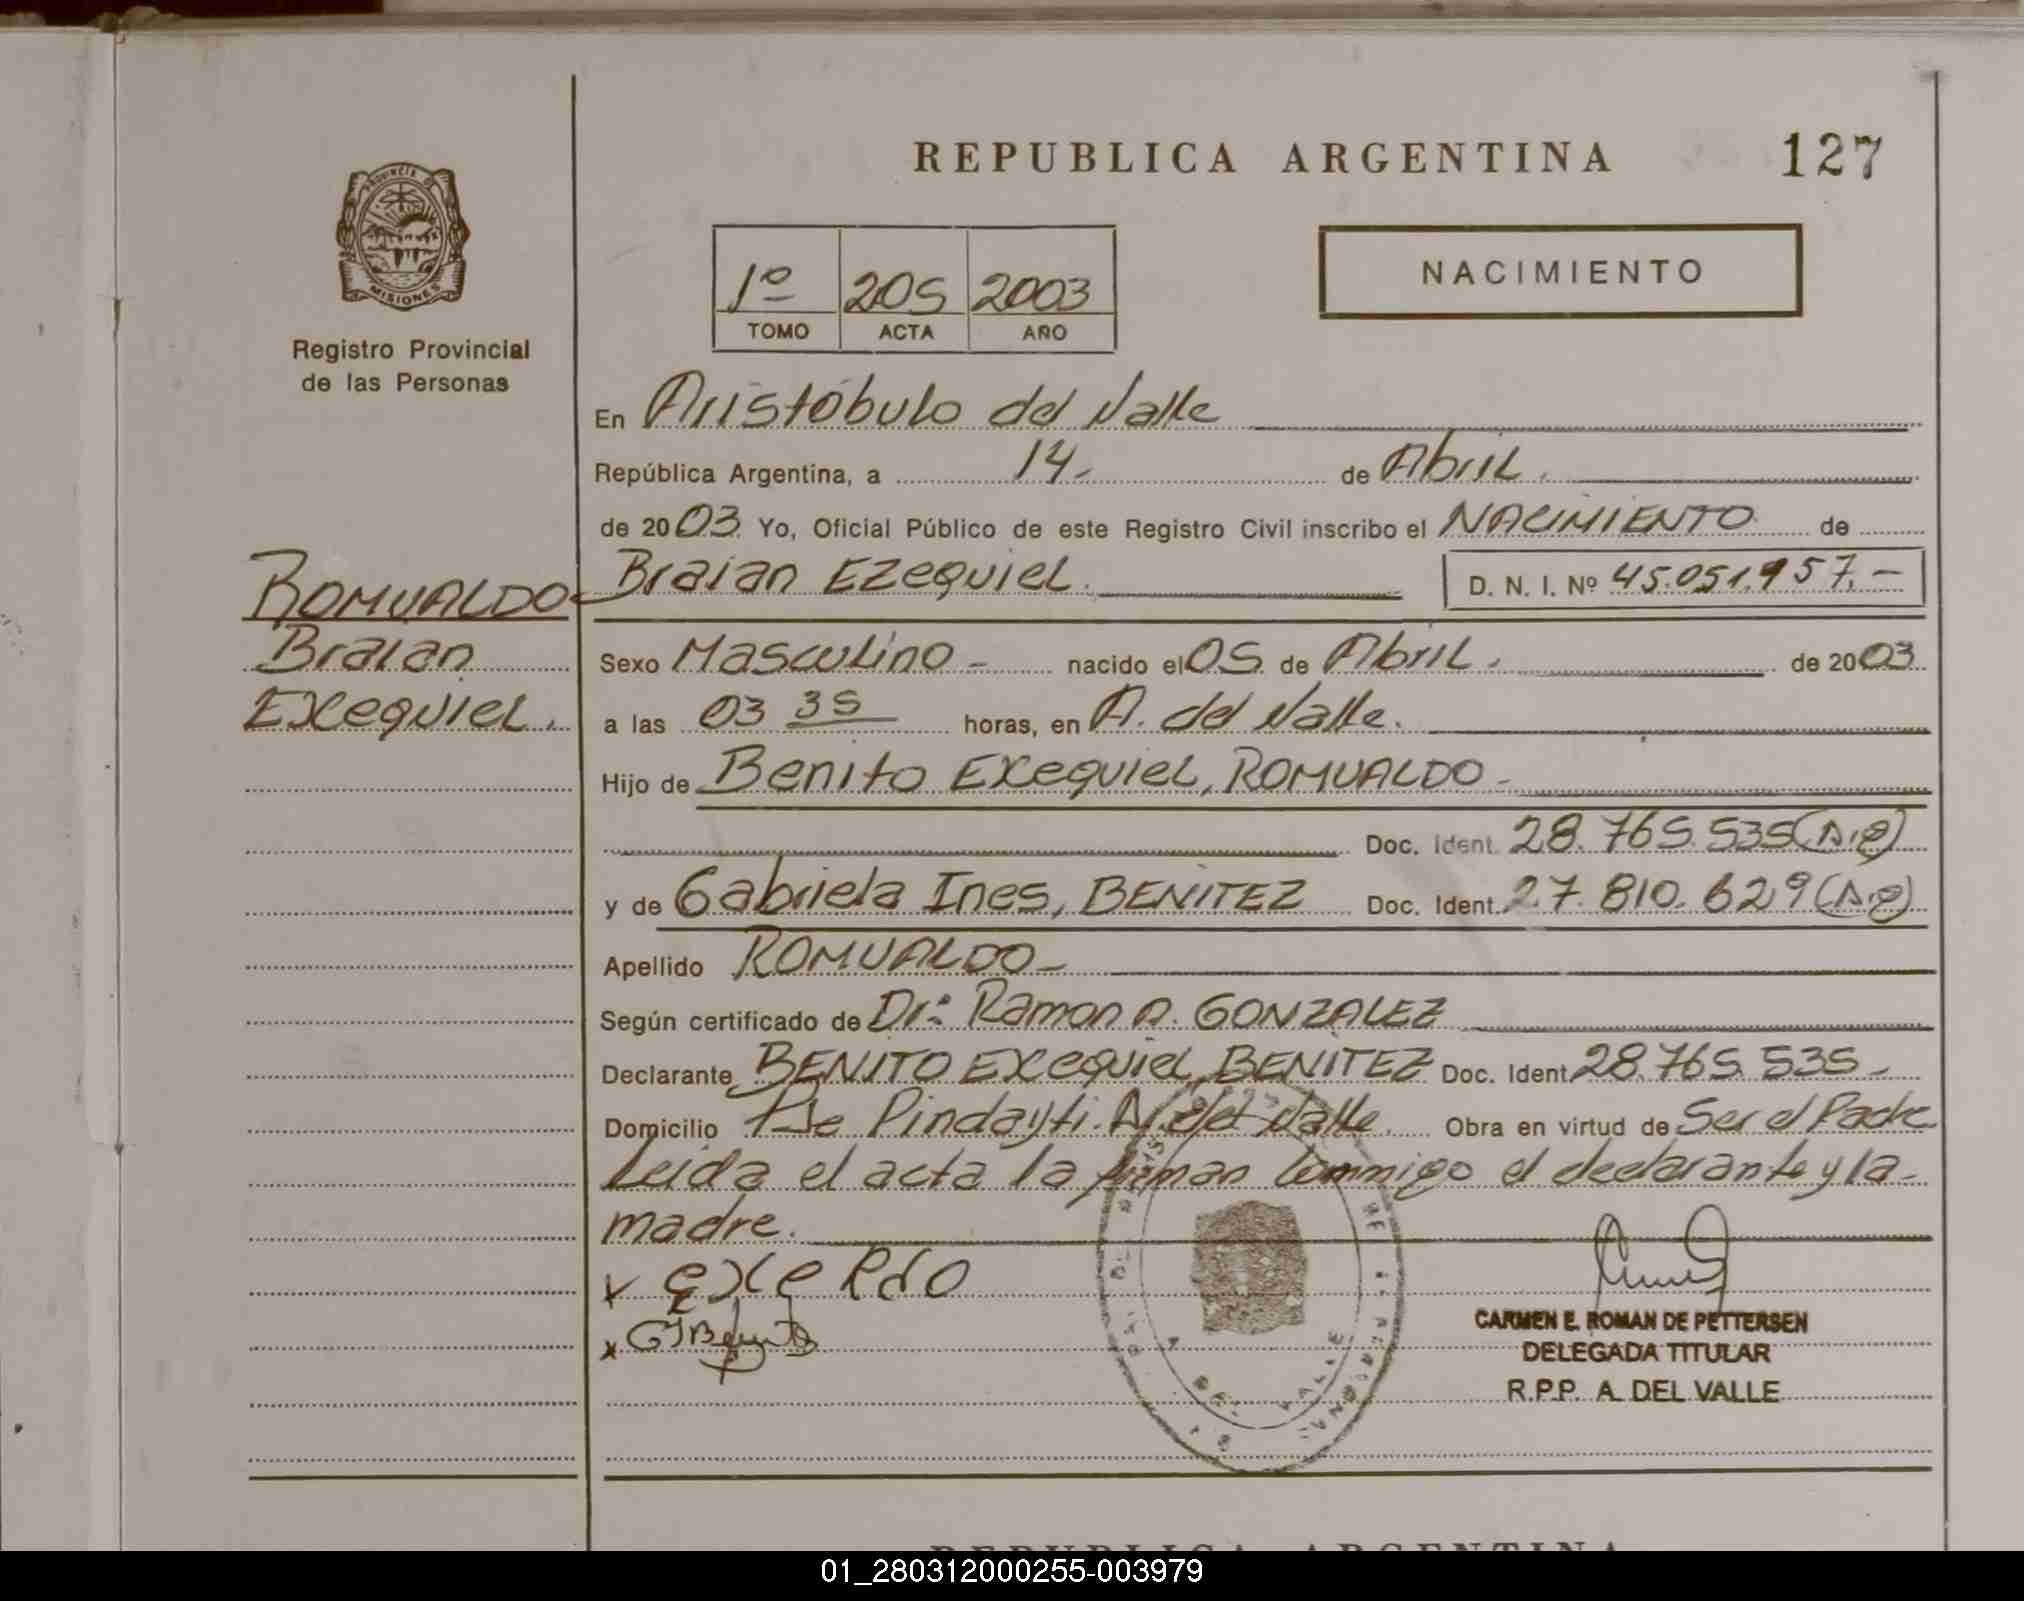 REPUBLICA ARGENTINA
127
PROVINCIA DE
MISIONES
Registro Provincial
de las Personas
1º 205 2003
TOMO ACTA AÑO
NACIMIENTO
En Aristóbulo del Valle
República Argentina, a 14 de Abril.
de 2003 Yo, Oficial Público de este Registro Civil inscribo el NACIMIENTO de
Braian Ezequiel. D. N. I. Nº 45.051.957.-
ROMUALDO
Braian
Exequiel.
Sexo Masculino - nacido el 05 de Abril. de 2003
a las 03 35 horas, en A. del Valle.
Hijo de Benito Exequiel, ROMUALDO -
Doc. Ident. 28.765.535
y de Gabriela Ines, BENITEZ Doc. Ident. 27.810.629
Apellido ROMUALDO -
Según certificado de Dr: Ramon A. GONZALEZ
Declarante BENITO Exequiel, BENITEZ Doc. Ident. 28.765.535 -
Domicilio Pindayti. A. del Valle. Obra en virtud de Ser el Padre
Leida el acta la firman commigo el declarante y la
madre.
x exe Rdo
x
CARMEN E. ROMAN DE PETTERSEN
DELEGADA TITULAR
R.P.P. A. DEL VALLE
A. DEL VALLE
REPUBLICA ARGENTINA
01_280312000255-003979